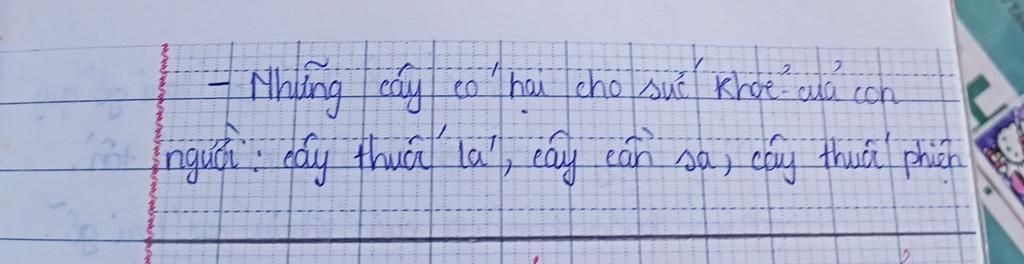 - Những cây có hại cho sức khoẻ của con
người: cây thuốc lá, cây cần sa, cây thuốc phiện